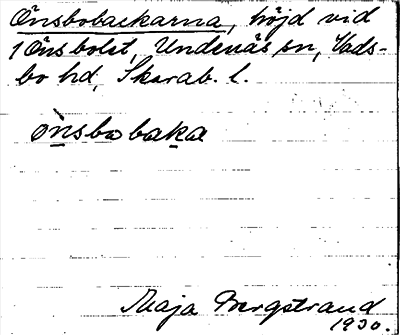 Önsbobackarna, höjd vid
1 Önsbolet, Undenäs sn, Vads-
bo hd, Skarab. l.
ònsbobaka
Maja Bergstrand
1930.